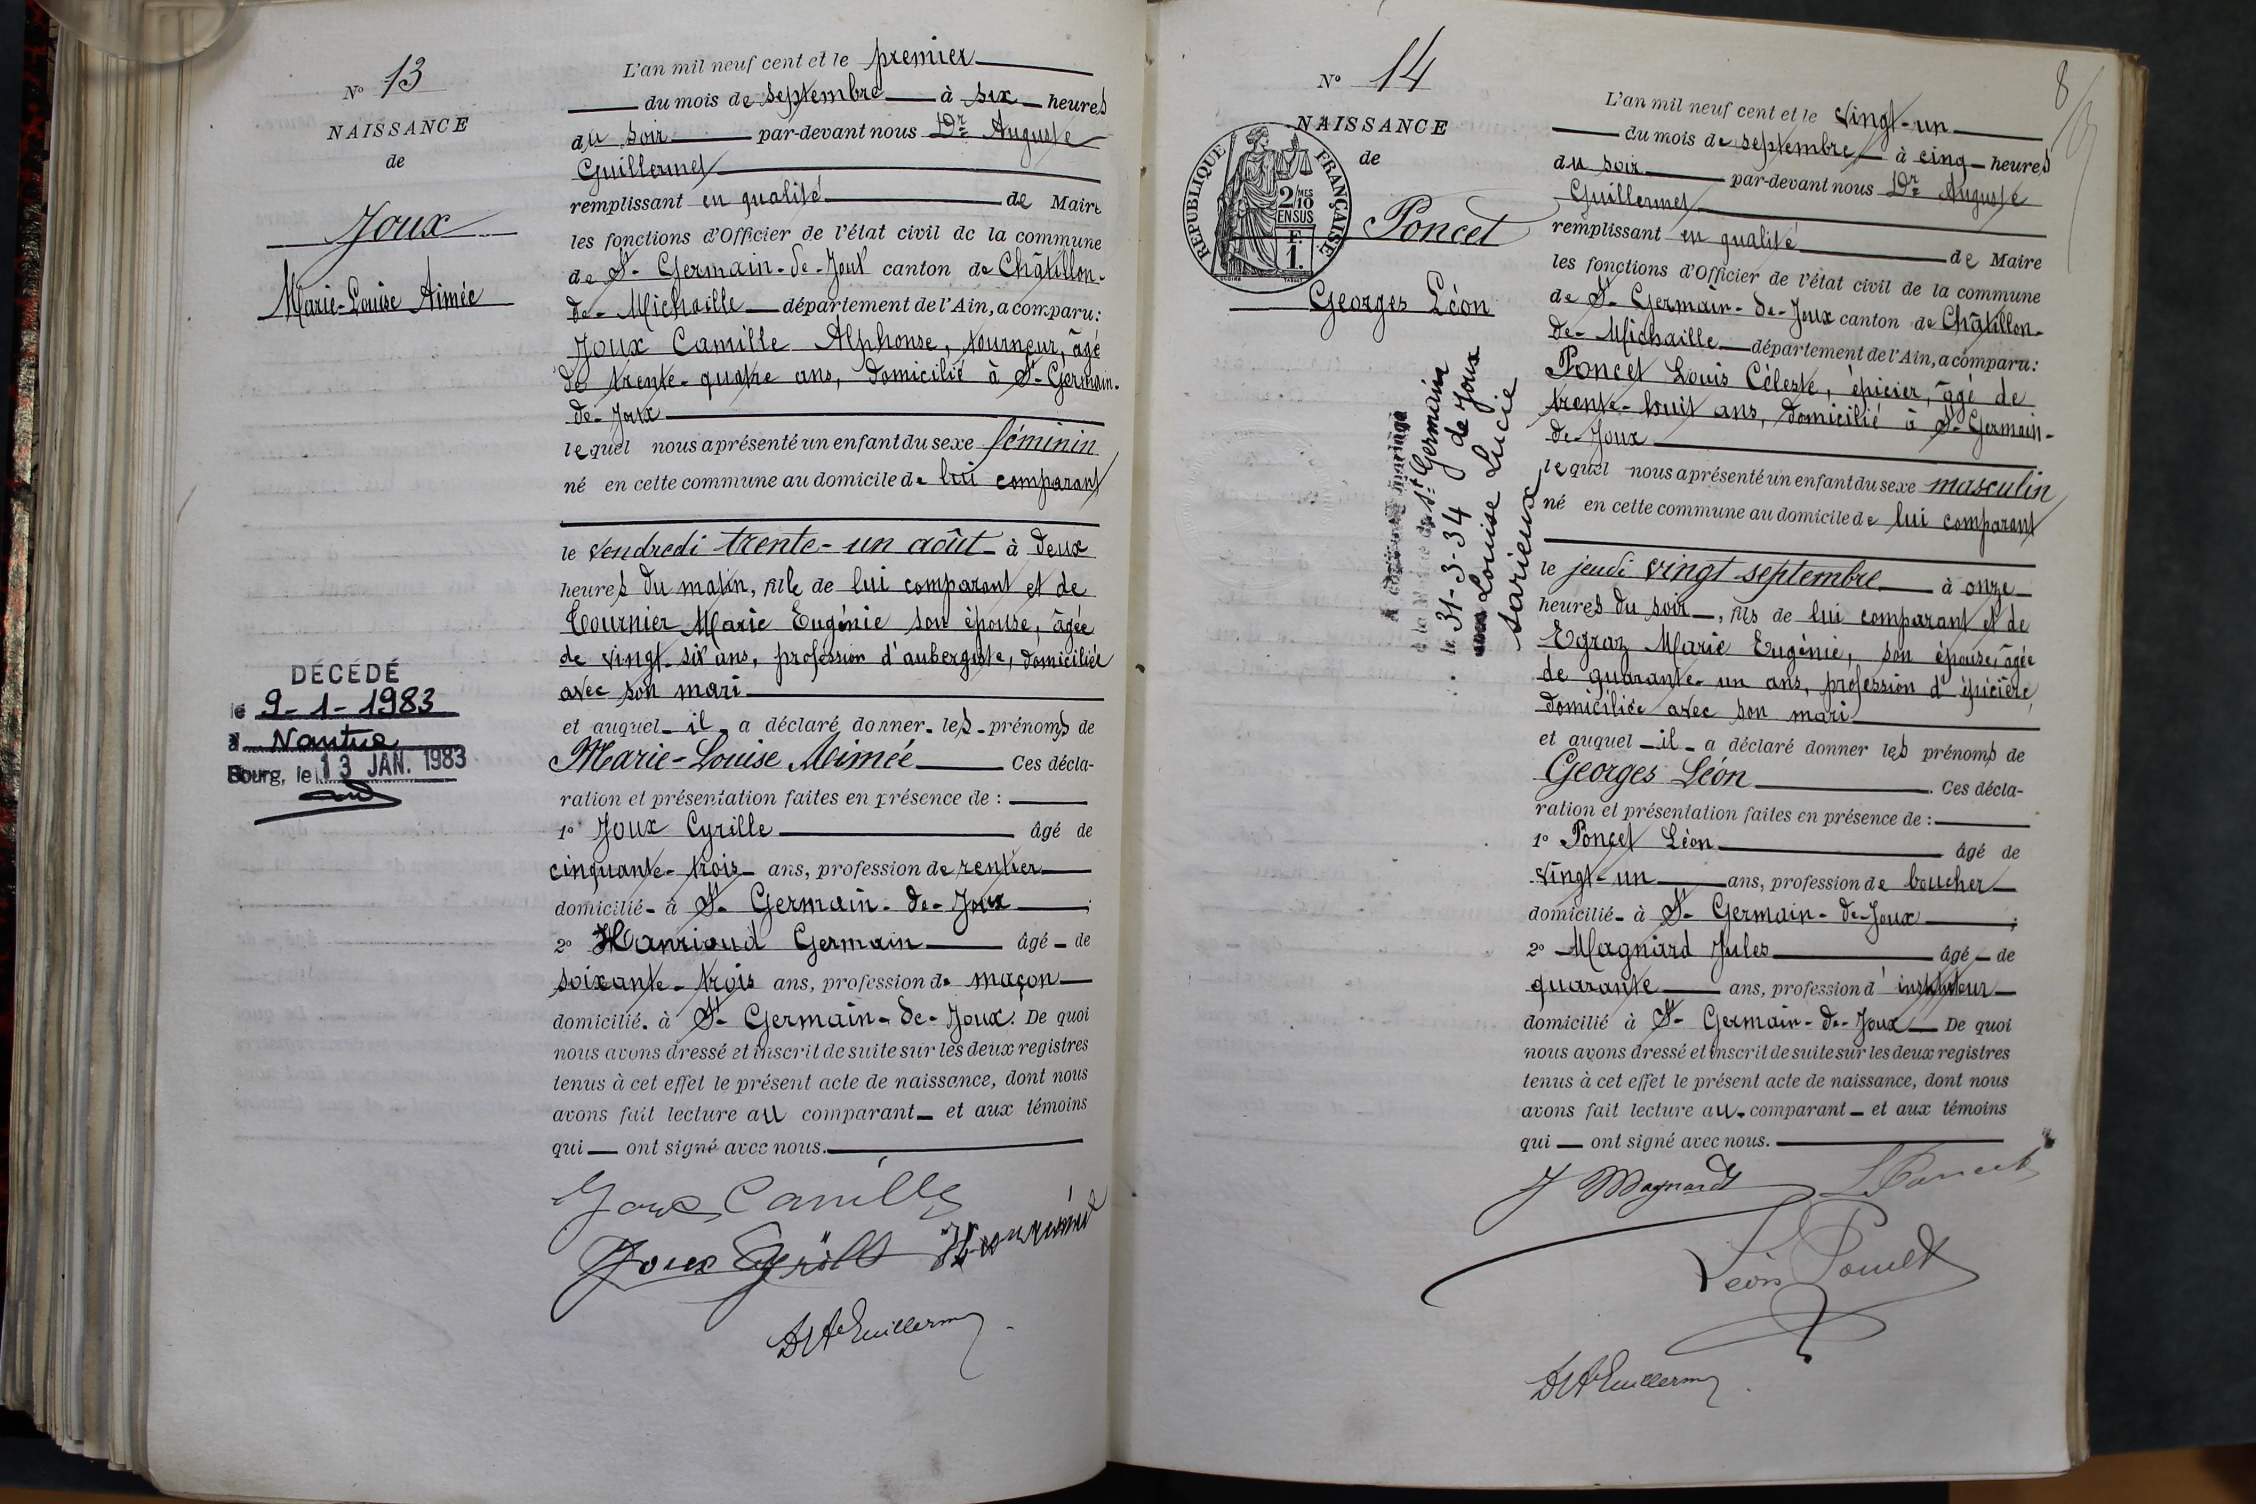 N° 13
NAISSANCE
de
Joux
Marie-Louise Aimée
DÉCÉDÉ
le 9-1-1983
à Nantua
Bourg, le 13 JAN. 1983
L'an mil neuf cent et le premier
du mois de septembre à six heures
du soir par-devant nous Dr Auguste
Guillermet
remplissant en qualité de Maire
les fonctions d'Officier de l'état civil de la commune
de St-Germain-de-Joux canton de Châtillon-
de-Michaille département de l'Ain, a comparu:
Joux Camille Alphonse, tourneur, âgé
de trente-quatre ans, domicilié à St-Germain-
de-Joux
lequel nous a présenté un enfant du sexe féminin
né en cette commune au domicile de lui comparant
le vendredi trente-un août à deux
heures du matin, fille de lui comparant et de
Tournier Marie Eugénie son épouse, âgée
de vingt-six ans, profession d'aubergiste, domiciliée
avec son mari
et auquel il a déclaré donner les prénoms de
Marie-Louise Aimée Ces décla-
ration et présentation faites en présence de :
1° Joux Cyrille âgé de
cinquante-trois ans, profession de rentier
domicilié à St-Germain-de-Joux ;
2° Hanrioud Germain âgé de
soixante-trois ans, profession de maçon
domicilié à St-Germain-de-Joux. De quoi
nous avons dressé et inscrit de suite sur les deux registres
tenus à cet effet le présent acte de naissance, dont nous
avons fait lecture au comparant et aux témoins
qui ont signé avec nous.
Joux Camille
Joux Cyrille
Dr A Guillermet
N° 14
NAISSANCE
de
RÉPUBLIQUE FRANÇAISE
2/10 MES
EN SUS
F.
1.
Poncet
Georges Léon
mariage
St Germain
de Joux
le 31-3-34
avec Louise Lucie
Sarieux
8
L'an mil neuf cent et le vingt-un
du mois de septembre à cinq heures
du soir par-devant nous Dr Auguste
Guillermet
remplissant en qualité de Maire
les fonctions d'Officier de l'état civil de la commune
de St-Germain-de-Joux canton de Châtillon-
de-Michaille département de l'Ain, a comparu:
Poncet Louis Céleste, épicier, âgé de
trente-huit ans, domicilié à St-Germain-
de-Joux
lequel nous a présenté un enfant du sexe masculin
né en cette commune au domicile de lui comparant
le jeudi vingt septembre à onze
heures du soir, fils de lui comparant et de
Egraz Marie Eugénie, son épouse, âgée
de quarante-un ans, profession d'épicière,
domiciliée avec son mari
et auquel il a déclaré donner les prénoms de
Georges Léon. Ces décla-
ration et présentation faites en présence de :
1° Poncet Léon âgé de
vingt-un ans, profession de boucher
domicilié à St-Germain-de-Joux ;
2° Magnard Jules âgé de
quarante ans, profession d'instituteur
domicilié à St-Germain-de-Joux De quoi
nous avons dressé et inscrit de suite sur les deux registres
tenus à cet effet le présent acte de naissance, dont nous
avons fait lecture au comparant et aux témoins
qui ont signé avec nous.
J Magnard L Poncet
Léon Poncet
Dr A Guillermet